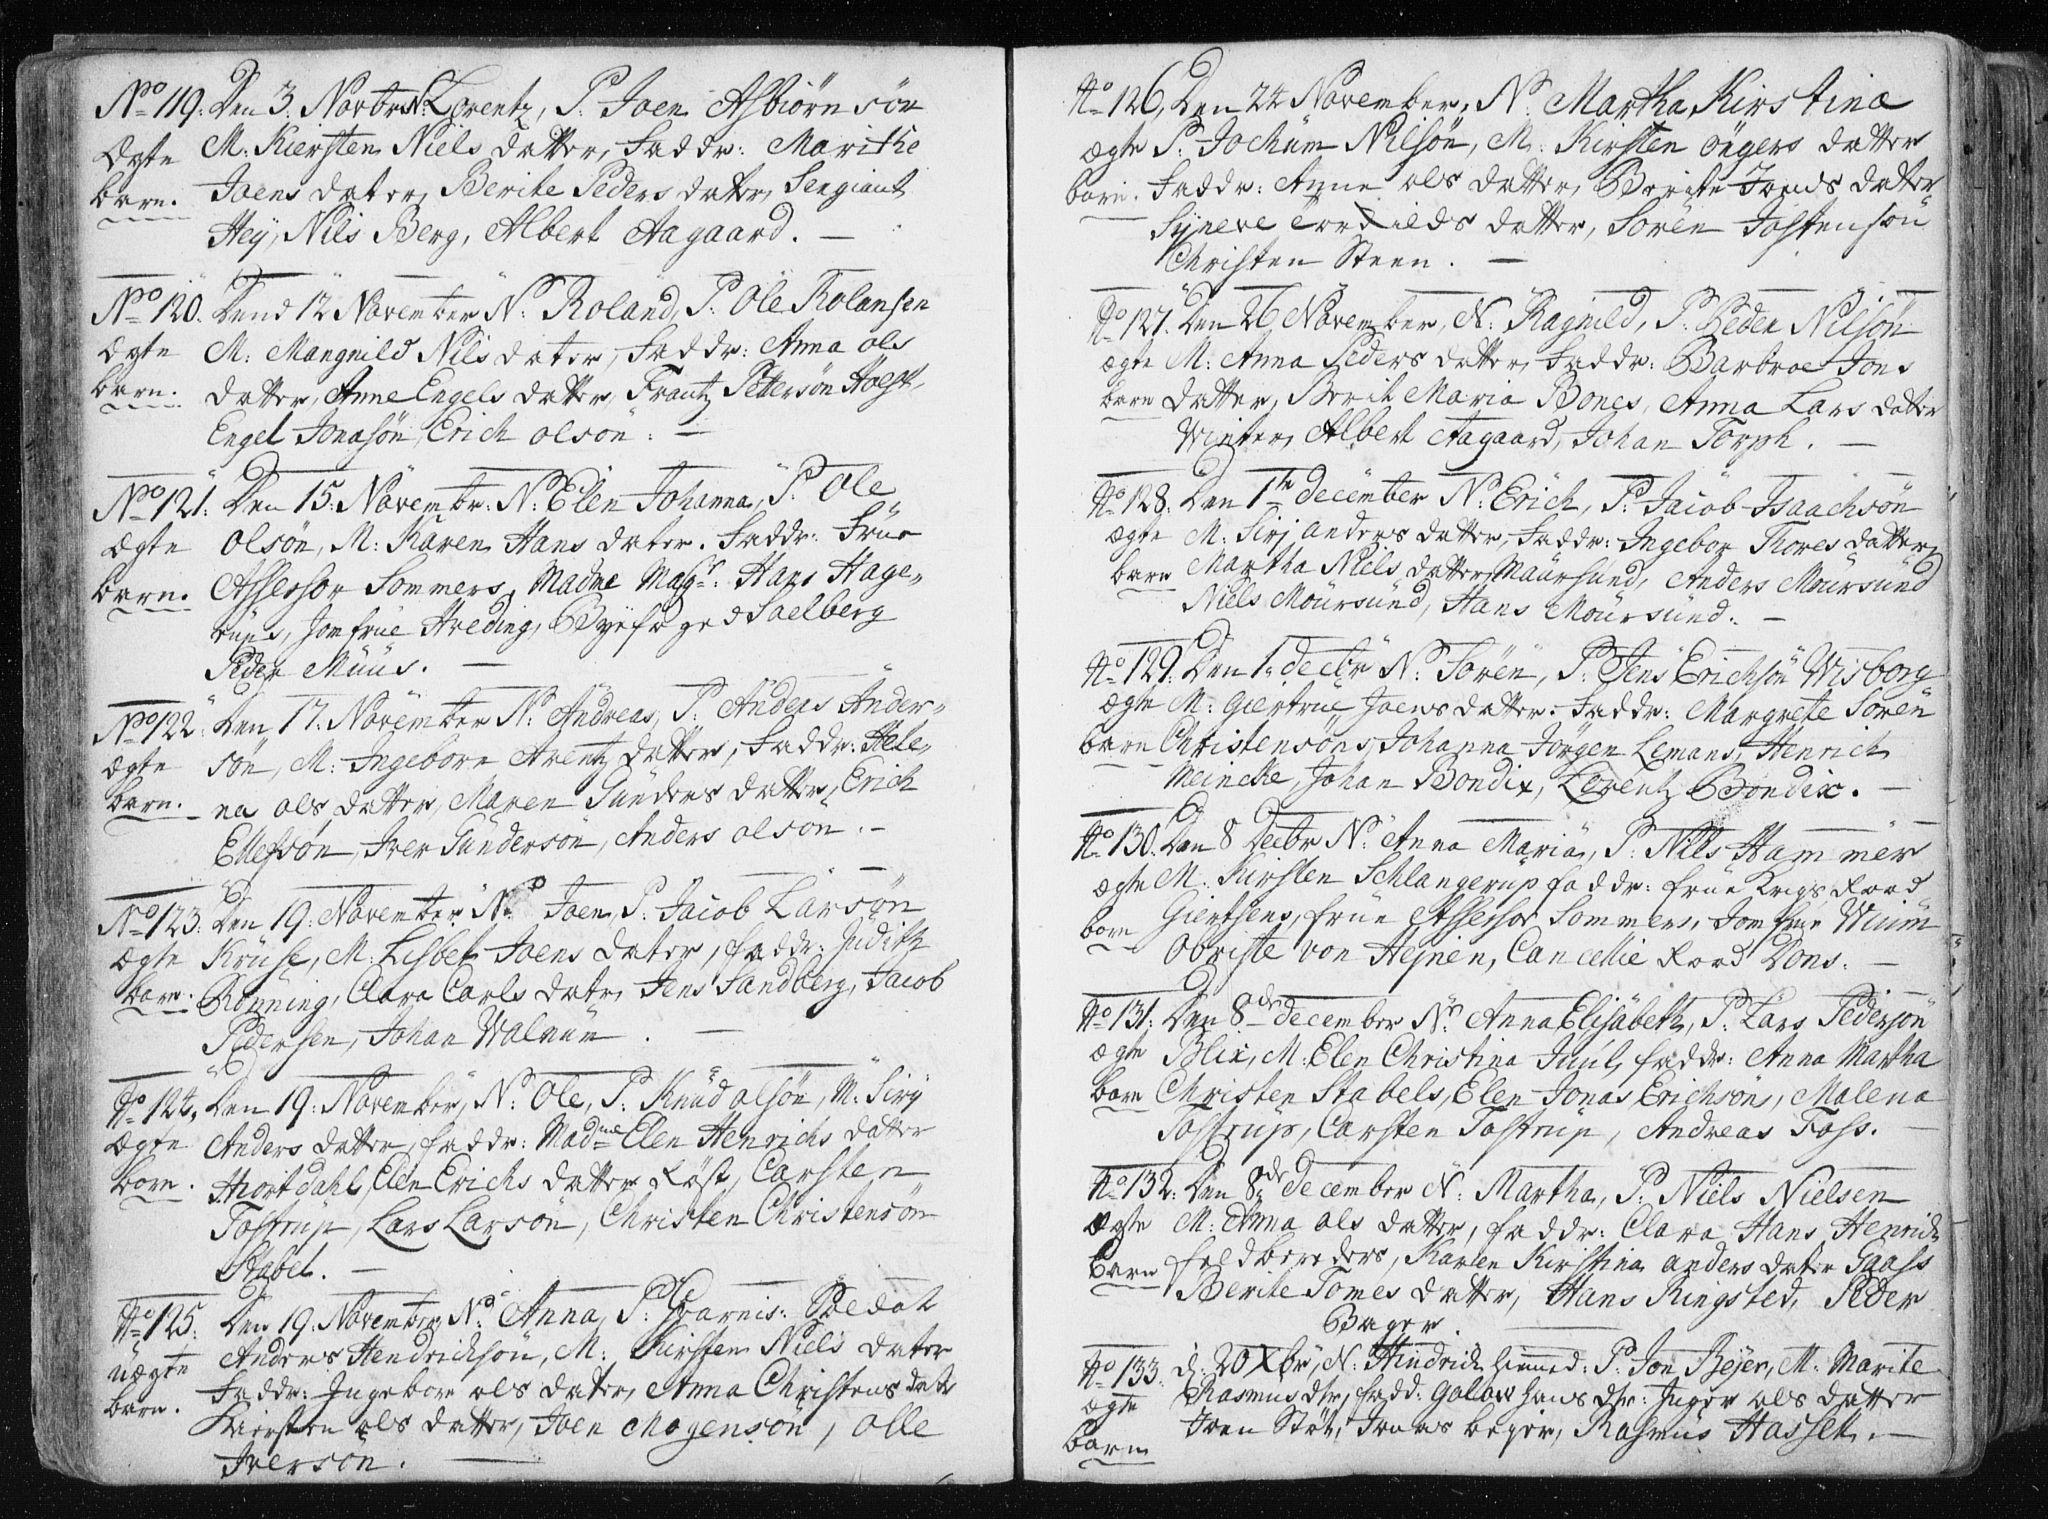 No 119: Den 3. Novbr N. Lorentz, P. Joen Asbiørnsøn
Ægte M. Kiersten Niels datter, Faddr: Marithe
barn. Joens dater, Berite Peders dater, Sergiant
Hey, Nils Berg, Albert Aagaard. —
No 120. Dend 12 November N. Roland, P. Ole Rolansen
Ægte M: Mangnild Nils dater, Faddr: Anna ols
barn. datter, Anne Engels datter, Frantz Pettersøn Holst,
Engel Jonasøn, Erich olsøn: —
No 121. Den 15: Novembr: N. Elen Johanna, P. Ole
Ægte olsøn, M: Karen Hans dater. Faddr: Frue
barn. Assessor Sommers, Madme Magr: Hans Hage-
rups, Jomfrue Hveding, Byefoged Saelberg
Peder Muus. —
No 122: Den 17. November N. Andreas, P. Anders Ander-
ægte søn, M. Ingeborr Arentz datter, Faddr: Hele-
barn. na ols datter, Maren Gunders datter, Erich
Ellefsøn, Iver Gundersøn, Anders olsøn. —
No 123: Den 19: November N. Joen, P. Jacob Larsøn
ægte Kruse, M. Lisbet Joens dater, faddr: Judith
barn. Rønning, Clara Carls datr, Jens Sandberg, Jacob
Pedersen, Johan Walnum. —
No 124, Den 19: November, N: Ole, P. Knud olsøn, M: Sirj
Ægte Anders datter, faddr: Madme Elen Henrichs datter
barn. Hiortdahl, Elen Erichs datter Røst, Carsten
Tostrup, Lars Larsøn, Christen Christensøn
Stabel. —
No 125. Den 19: November, N. Anna, P. Gvarnis: Soldat
uægte Anders Hendrichsøn, M: Kirsten Niels dater
barn. Faddr: Ingeborr ols dater, Anna Christens datr
Kiersten ols datter, Joen Mogensøn, olle
Iversøn. —
No 126, Den 24 November, N. Martha Kirstina
ægte P. Jochum Nilsøn, M. Kirsten Ongers datter
barn. Faddr: Anne ols datter, Berite Jonds dater
Syneve Torkilds datter, Søren Jostensøn
Christen Steen. —
No 127. Den 26 November, N: Ragnild, P. Peder Nilsøn
ægte M. Anna Peders datter, Faddr: Barbroe Jons
barn datter, Berit Maria Bones, Anna Lars datter
Winter, Albert Aagaard, Johan Torph. —
No 128. Den 1te december N. Erich, P. Jacob Isaachsøn
ægte M. Sirj anders datter, Faddr: Ingebor Thores datter,
barn Martha Niels datter Maursund, Anders Moursund
Niels Moursund, Hans Moursund. —
No 129. Den 1. decbr N. Søren, P. Jens Erichsøn Wisborg
ægte M. Giertrue Joens datter. Faddr: Margrete Søren
barn Christensøns, Johanna Jørgen Lemans, Henrich
Meincke, Johan Bondix, Lorentz Bondix. —
No 130. Den 8 Decbr N. Anna Maria, P. Nils Hammer
ægte M. Kirsten Schlangerup faddr: frue Krigs Raad
barn Giertsens, frue Assessor Sommers, Jomfrue Wium
Obriste von Heynen, Cancellie Raad Dons. —
No 131. Den 8de december N. Anna Elisabeth, P. Lars Pedersøn
ægte Blix, M. Elen Christina Juul, faddr: Anna Martha
barn Christen Stabels, Elen Jonas Erichsøns, Malena
Tostrup, Carsten Tostrup, Andreas Foss. —
No 132. Den 8de december N. Martha, P. Niels Nielsen
ægte M. Anna ols datter, faddr: Clara Hans Henrich
barn feldbereders, Karen Kirstina anders dater Gaass
Berite Tomes datter, Hans Ringsted, Peder
Bager.
No 133. d. 20 Xbr, N. Hindrich hiemed: P. Jon Bejer, M. Marite
ægte Rasmus dtr, fadd: Golow Hans dtr: Inger ols datter
barn Joen Støt, Jonas beyer, Rasmus Hassel. —